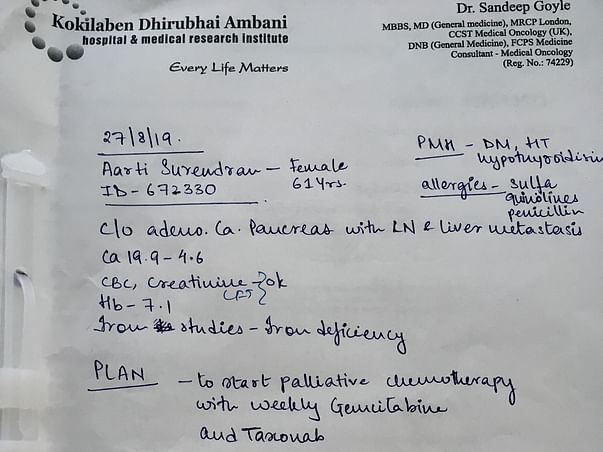 Kokilaben Dhirubhai Ambani
hospital & medical research institute
Every Life Matters
Dr. Sandeep Goyle
MBBS, MD (General medicine), MRCP London,
CCST Medical Oncology (UK),
DNB (General Medicine), FCPS Medicine
Consultant - Medical Oncology
(Reg. No.: 74229)
27/8/19.
Aarti Surendran – Female
61yrs.
ID - 672330
PMH - DM, HT
hypothyroidism
allergies - sulfa
quinolines
penicillin
c/o adeno. Ca. Pancreas with LN & liver metastasis
Ca 19.9 - 4.6
CBC, Creatinine } ok
LFT
Hb - 7.1
Iron studies - Iron deficiency
PLAN - to start palliative chemotherapy
with weekly Gemcitabine
and Taxonab